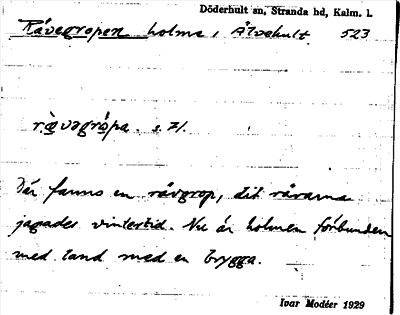 Döderhult sn, Stranda hd, Kalm. l.
Rävegropen holme, Älvehult 523
ræ̀vəgrópa. s. 71.
Där fanns en rävgrop, dit rävarna
jagades vintertid. Nu är holmen förbunden
med land med en brygga.
Ivar Modéer 1929